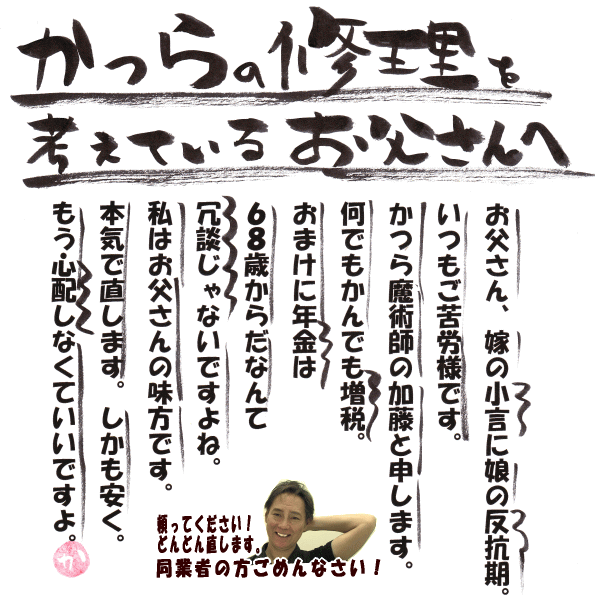 かつらの修理を
考えているお父さんへ
お父さん、嫁の小言に娘の反抗期。
いつもご苦労様です。
かつら魔術師の加藤と申します。
何でもかんでも増税。
おまけに年金は
68歳からだなんて
冗談じゃないですよね。
私はお父さんの味方です。
本気で直します。しかも安く。
もう心配しなくていいですよ。
か
頼ってください！
どんどん直します。
同業者の方ごめんなさい！